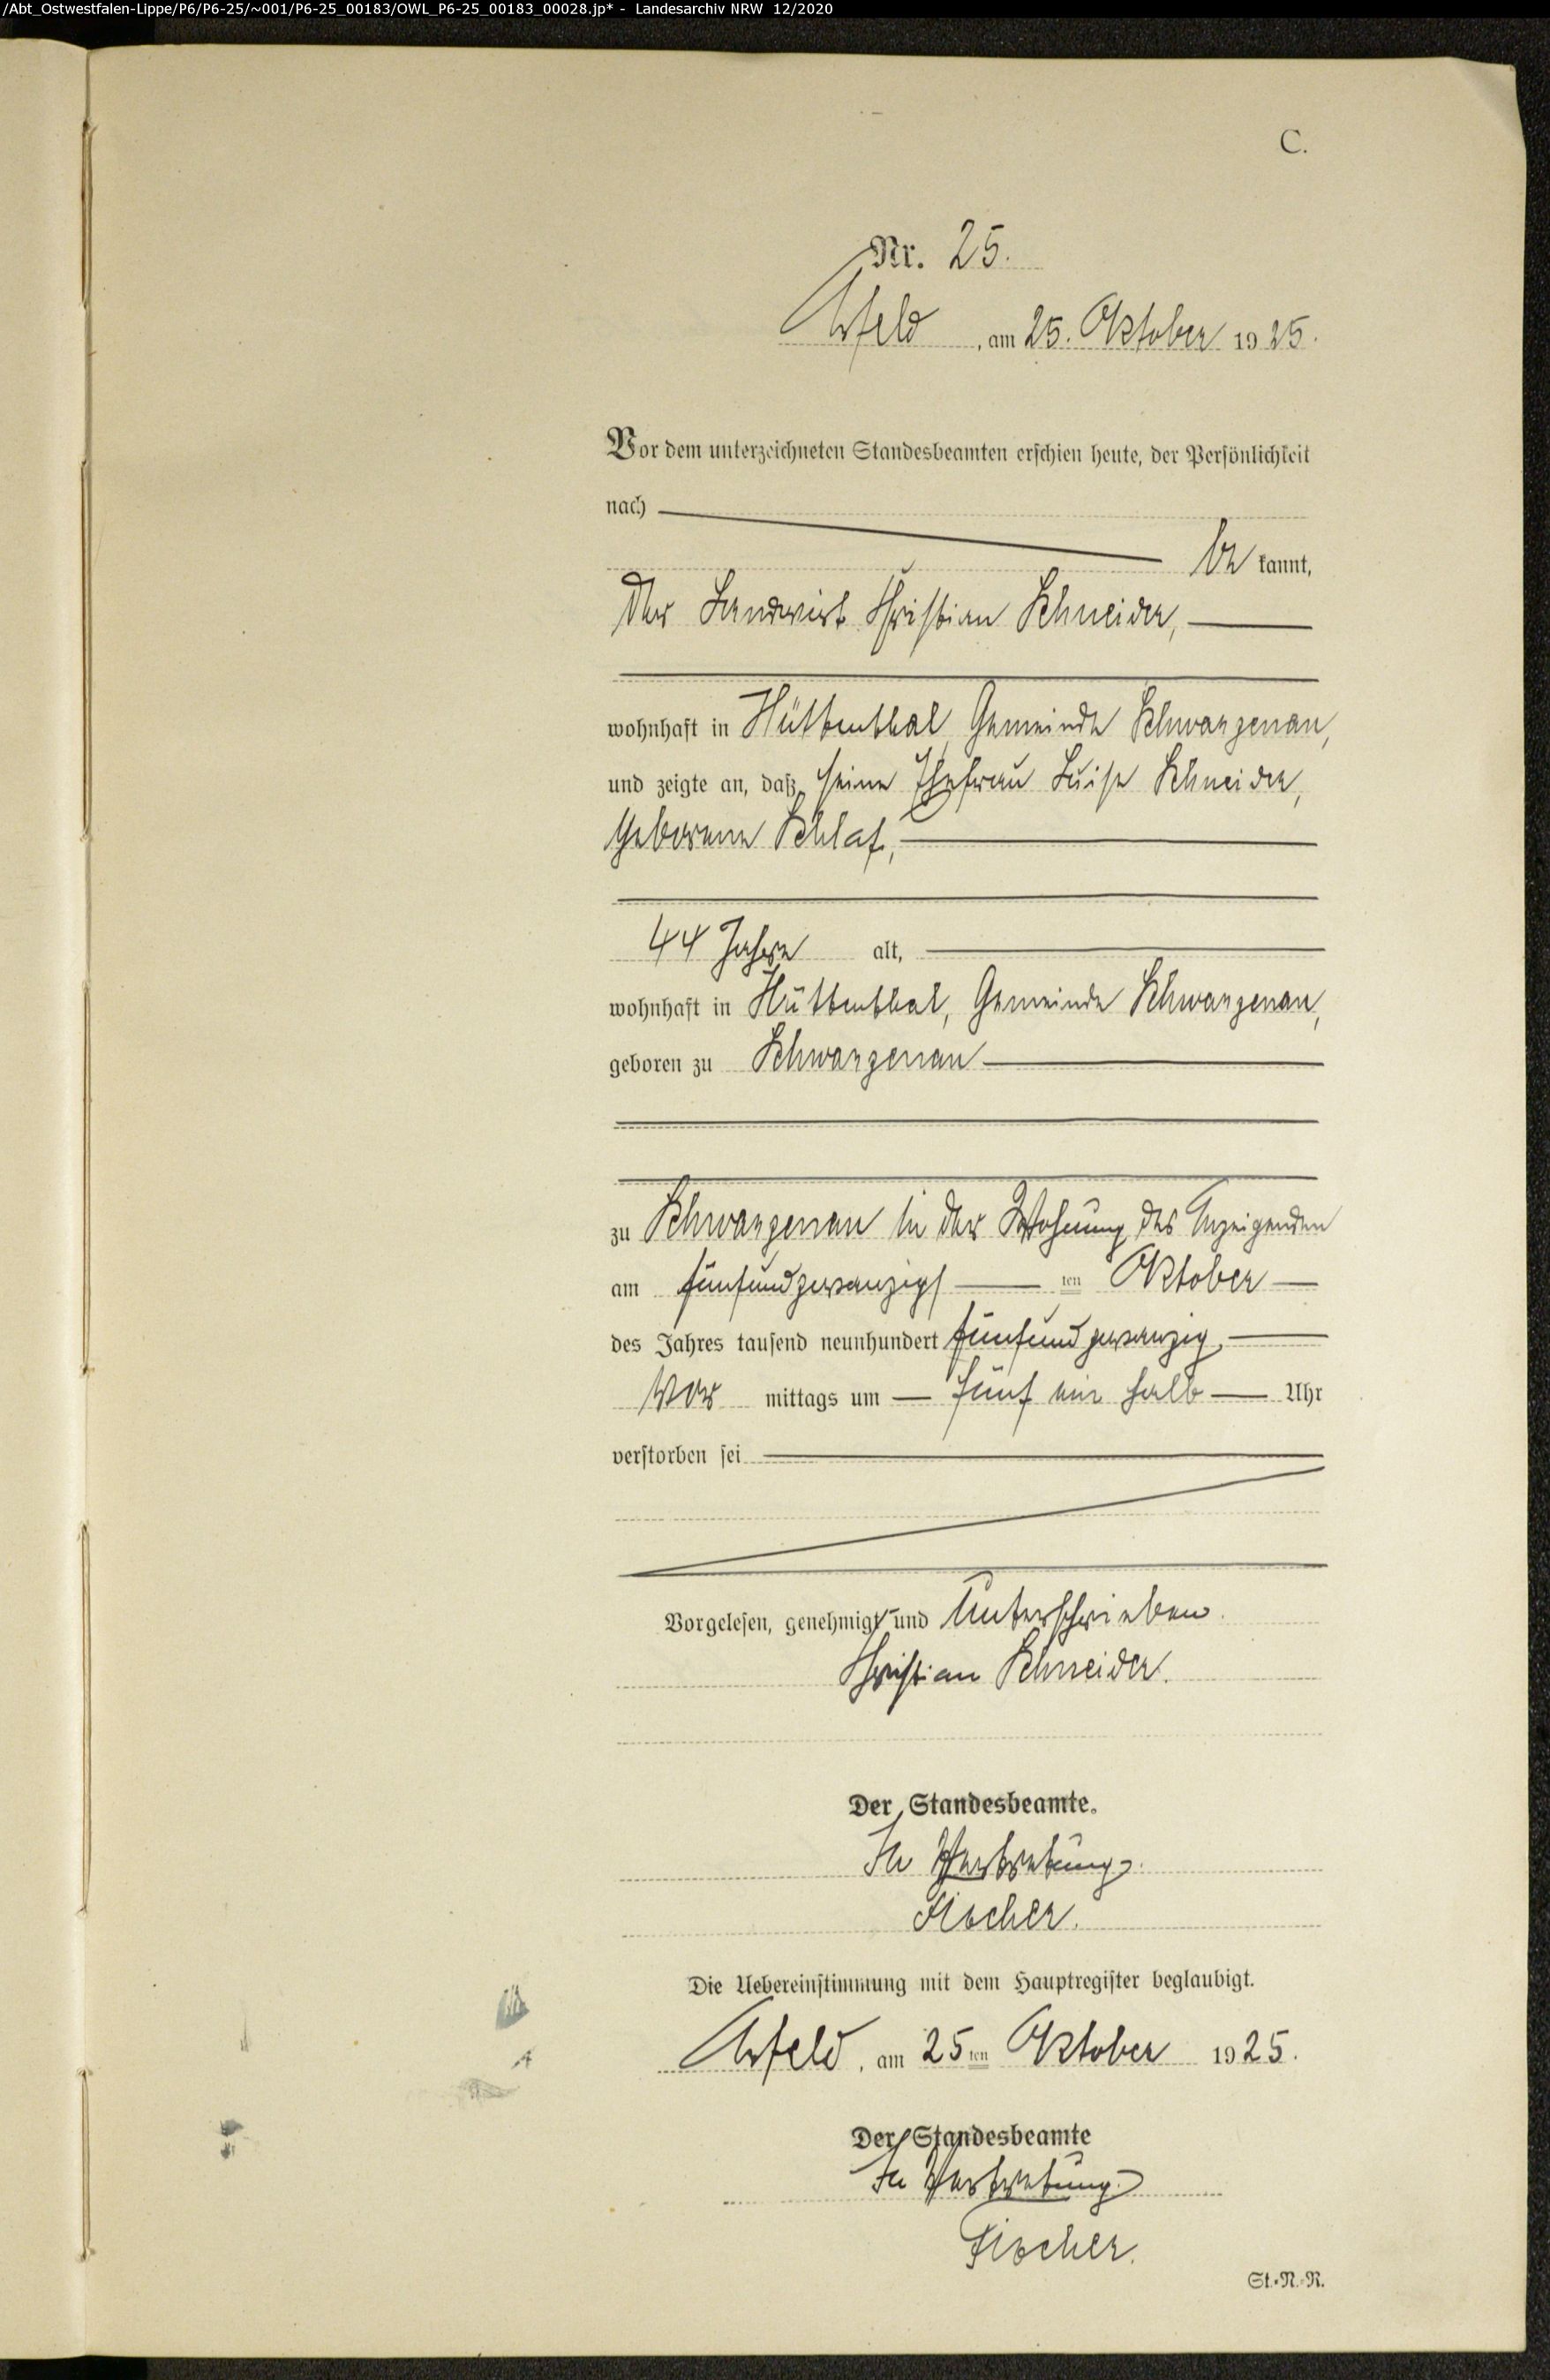 /Abt_Ostwestfalen-Lippe/P6/P6-25/~001/P6-25_00183/OWL_P6-25_00183_00028.jp* - Landesarchiv NRW 12/2020
C.
Nr. 25.
Arfeld, am 25. Oktober 1925.
Vor dem unterzeichneten Standesbeamten erschien heute, der Persönlichkeit
nach
be kannt,
der Landwirt Christian Schneider,
wohnhaft in Hüttenthal Gemeinde Schwarzenau,
und zeigte an, daß seine Ehefrau Luise Schneider,
geborene Schlaf,
44 Jahre alt,
wohnhaft in Hüttenthal, Gemeinde Schwarzenau,
geboren zu Schwarzenau
zu Schwarzenau in der Wohnung des Anzeigenden
am fünfundzwanzigs ten Oktober
des Jahres tausend neunhundert fünfundzwanzig,
Vor mittags um fünf ein halb Uhr
verstorben sei
Vorgelesen, genehmigt und Unterschrieben.
Christian Schneider.
Der Standesbeamte.
In Vertretung.
Fischer.
Die Uebereinstimmung mit dem Hauptregister beglaubigt.
Arfeld, am 25 ten Oktober 1925.
Der Standesbeamte
In Vertretung
Fischer.
St.-N.-R.